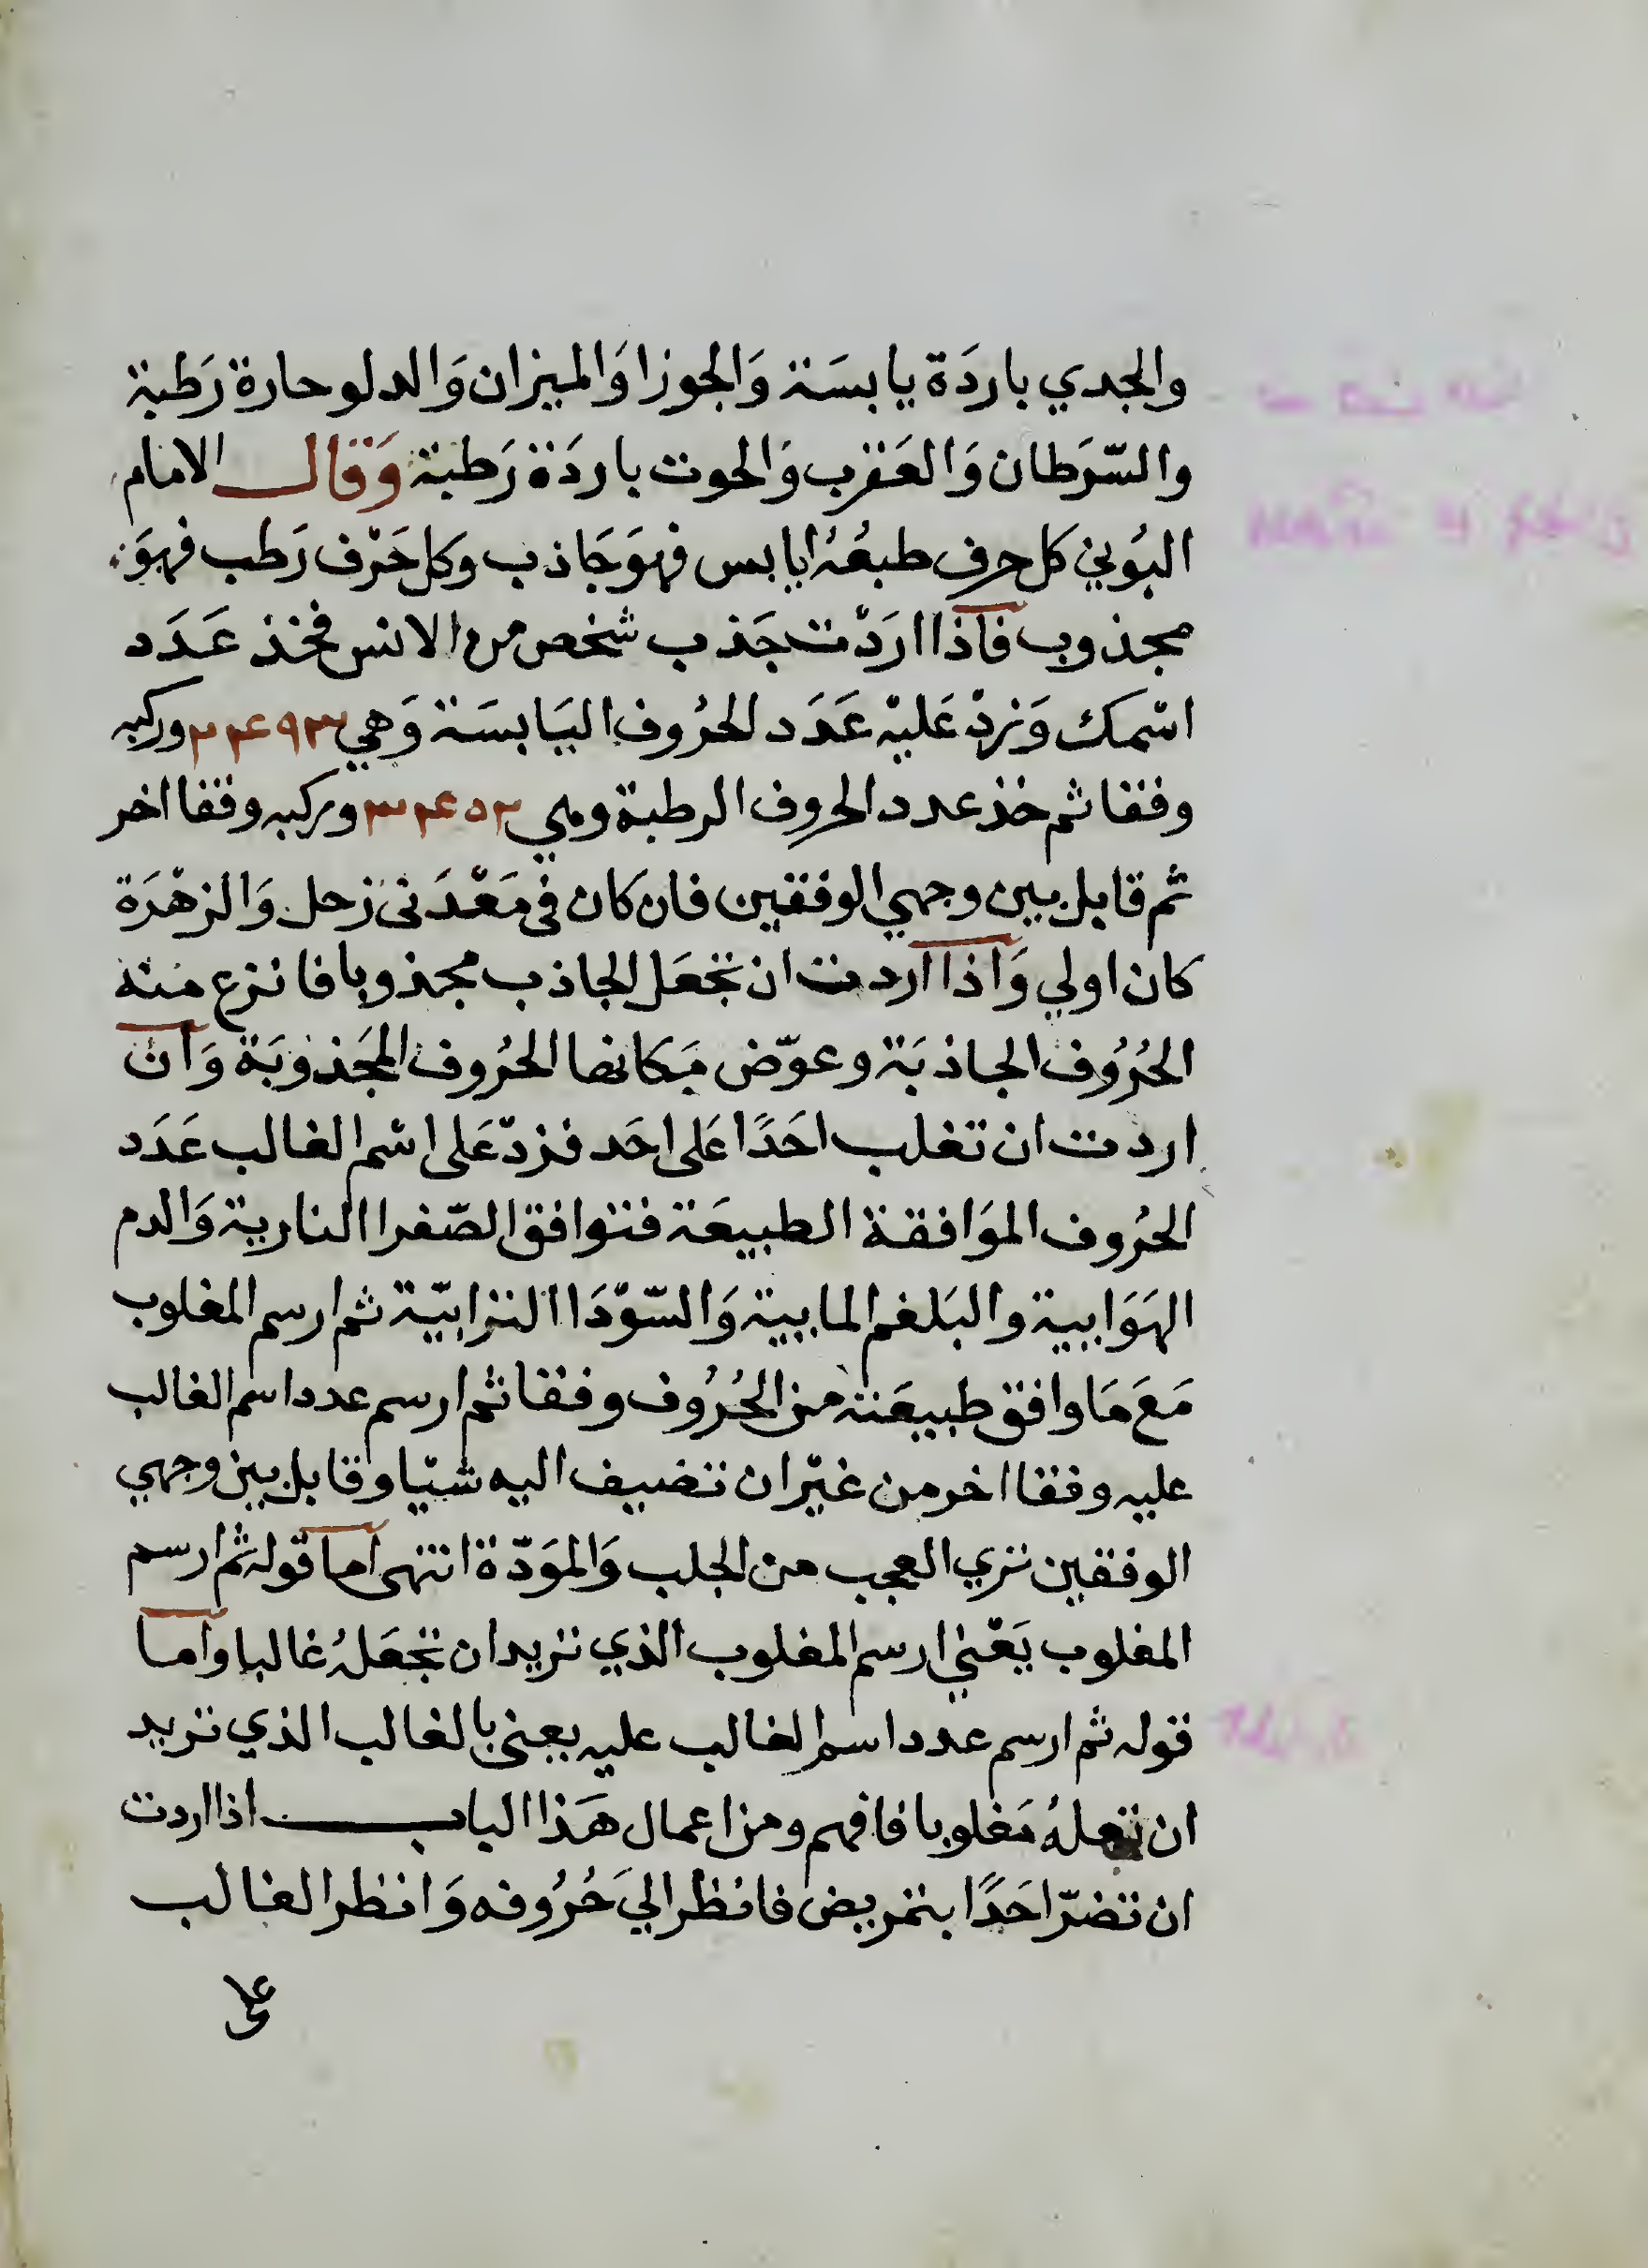 والجدي باردَة يابسَة وَالجوزا وَالميزان وَالدلو حارة رَطبة
والسّرَطان وَالعَقرب وَالحوت باردَة رَطبة وَقال الامام
البُوني كل حرف طبعُهُ يابس فهوَ جَاذب وكل حَرْف رَطب فهوَ
مجذوب فاذا ارَدْت جَذب شخص من الانس فخذ عَدَد
اسْمك وَزدْ عَليْه عَدَد الحرُوف اليَابسَة وَهي ٢٤٩٣ وركبه
وفقا ثم خذ عدد الحروف الرطبة وهي ٣٤٥٢ وركبه وفقا اخر
ثم قابل بين وجهي الوفقين فان كان في مَعْدَني زحل وَالزهْرَة
كان اولي وَاذا اردت ان تجعَل الجاذب مجذوبا فانزع منه
الحُرُوف الجاذبَة وعوّض مَكانها الحرُوف المجَذوبَة وَان
اردت ان تغلب احَدًا عَلى احَد فزدّ عَلى اسْم الغالب عَدَد
الحُروف الموَافقة الطبيعَة فتوافق الصّفرا النارية وَالدم
الهَوَايية والبَلغم المايية وَالسّوْدَا الترابيّة ثم ارسم المغلوب
مَعَ مَا وافق طبيعَته من الحُرُوف وفقا ثم ارسم عدد اسم الغالب
عليه وفقا اخر من غيْر ان تضيف اليه شيْا وقابل بين وجهي
الوفقين تري العجب من الجلب وَالموَدّة انتهى اما قوله ثم ارسم
المغلوب يَعْني ارسم المغلوب الذي تريد ان تجعَلهُ غالبا واما
قوله ثم ارسم عدد اسم الغالب عليه يعني بالغالب الذي تريد
ان تجعلهُ مَغلوبا فافهم ومن اعمال هَذا الباب اذا اردت
ان تضرّ احَدًا بتمريض فانظر اليَ حُرُوفه وَانظر الغالب
على